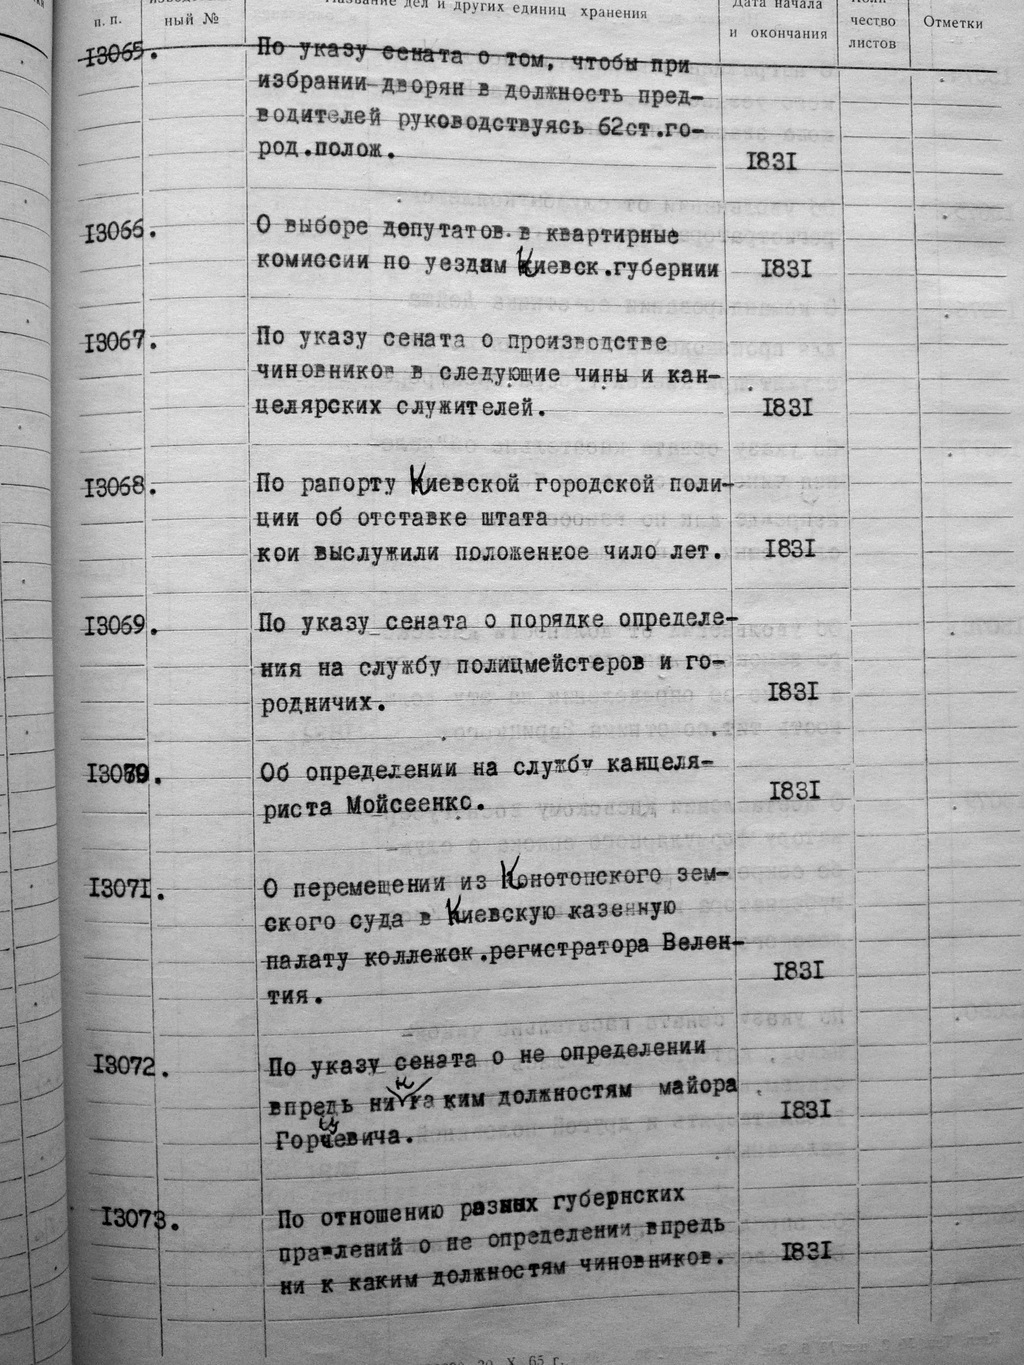 п. п.
ный №
Название дел и других единиц хранения
Дата начала
и окончания
чество
листов
Отметки
13065.
По указу сената о том, чтобы при
избрании дворян в должность пред-
водителей руководствуясь 62ст.го-
род.полож.
1831
13066.
О выборе депутатов в квартирные
комиссии по уездам Киевск.губернии
1831
13067.
По указу сената о производстве
чиновников в следующие чины и кан-
целярских служителей.
1831
13068.
По рапорту Киевской городской поли-
ции об отставке штата
кои выслужили положенное чило лет.
1831
13069.
По указу сената о порядке определе-
ния на службу полицмейстеров и го-
родничих.
1831
13070.
Об определении на службу канцеля-
риста Мойсеенко.
1831
13071.
О перемещении из Конотопского зем-
ского суда в Киевскую казенную
палату коллежск.регистратора Велен-
тия.
1831
13072.
По указу сената о не определении
впредь ни к каким должностям майора
1831
13073.
По отношению разных губернских
правлений о не определении впредь
ни к каким должностям чиновников.
1831
20. X. 65 г.